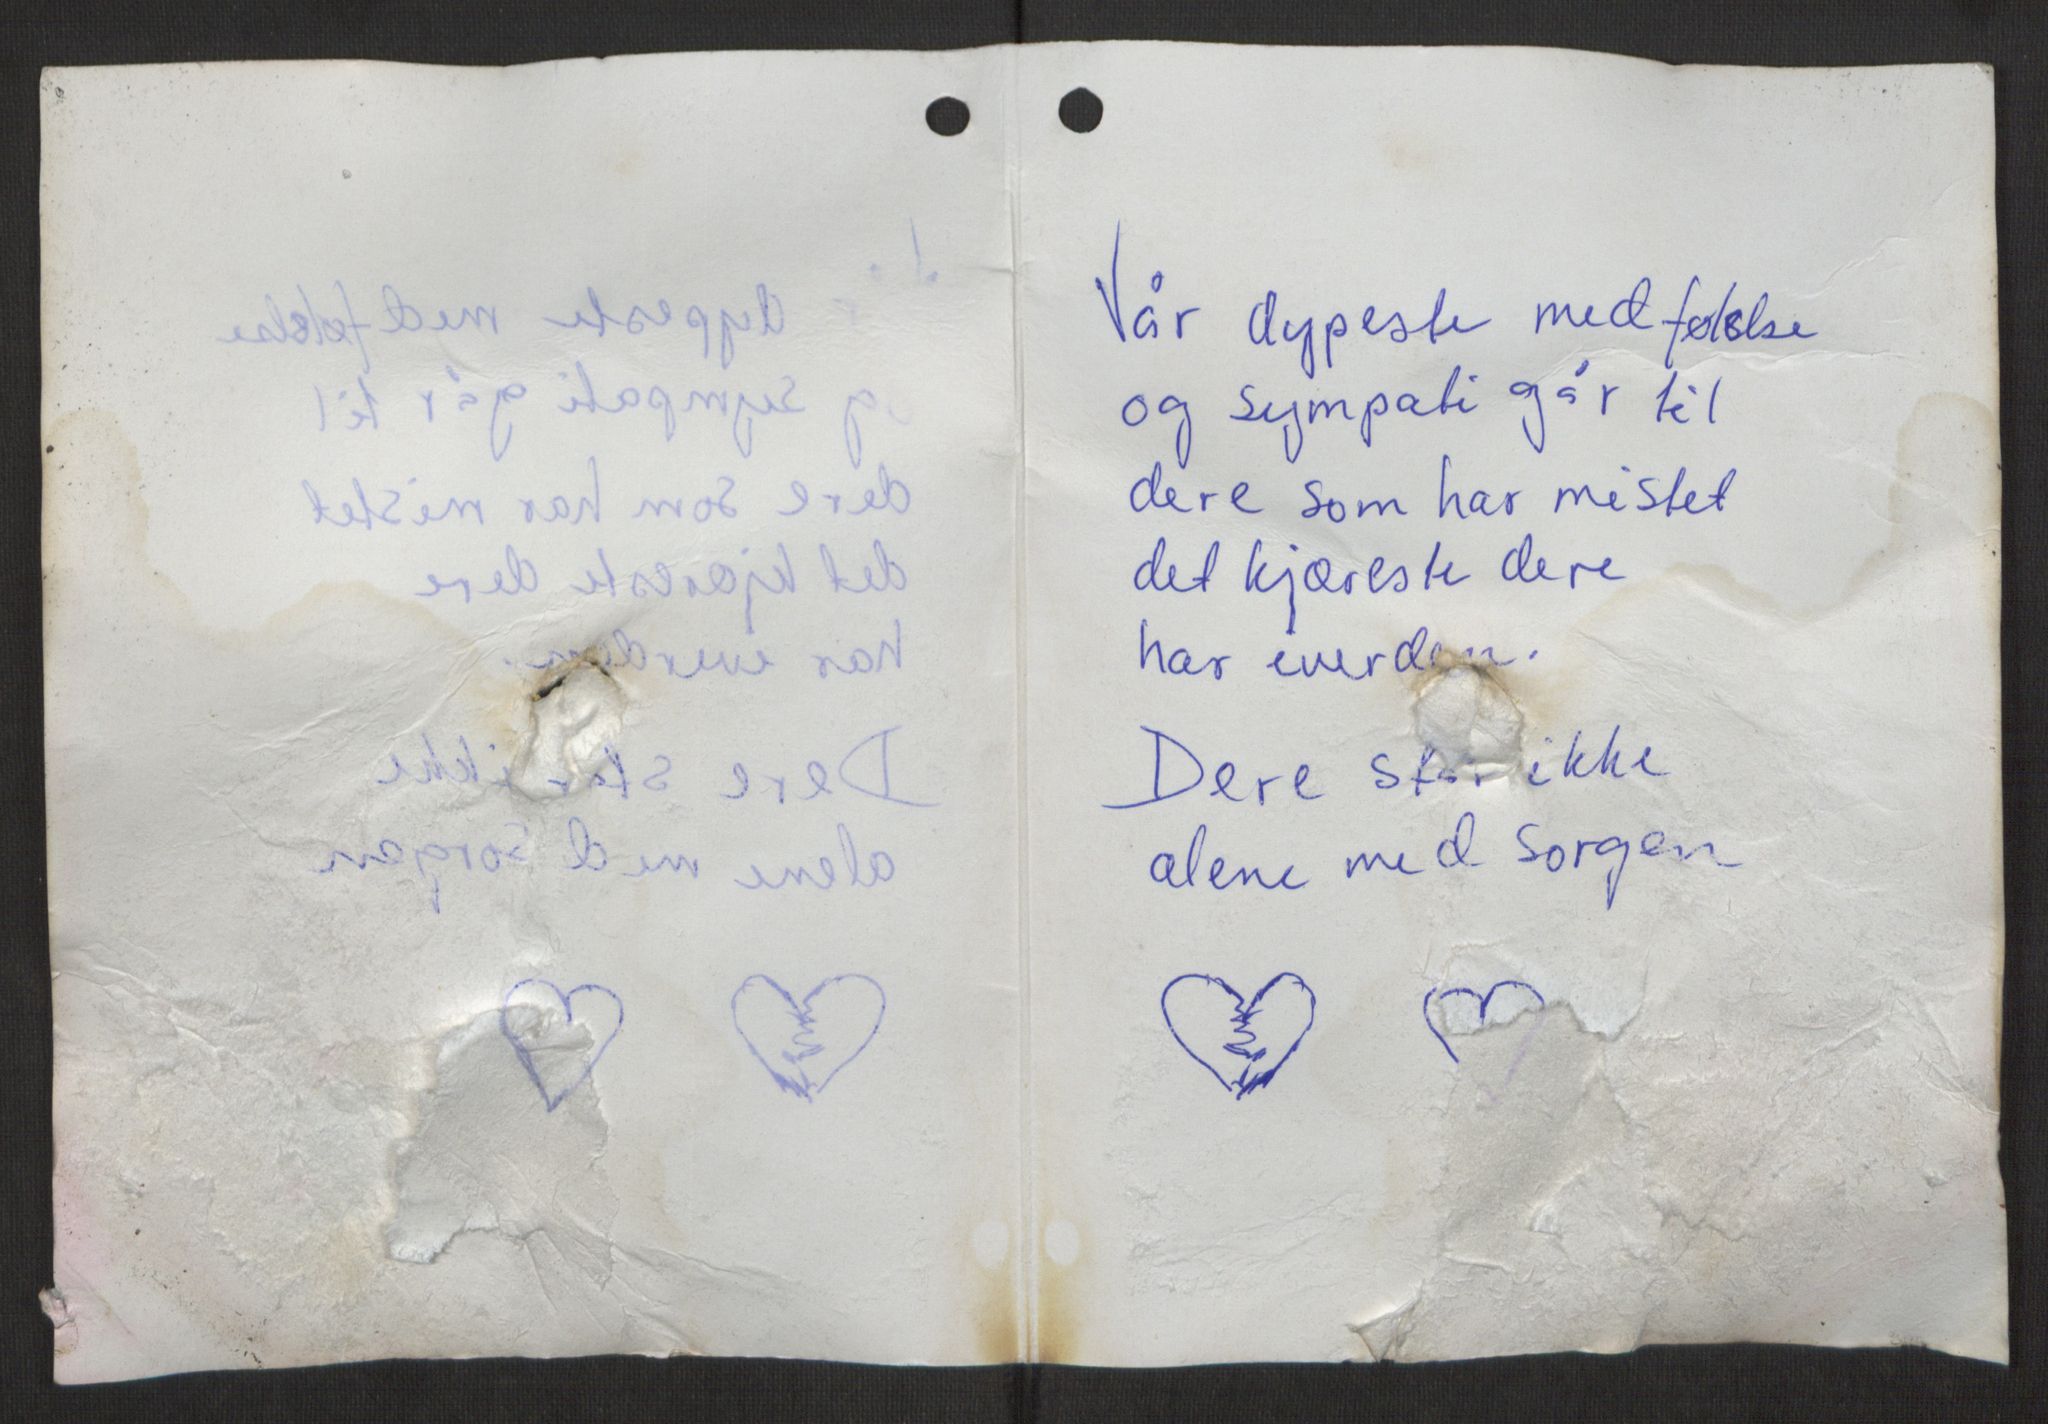 Vår dypeste medfølelse
og sympati går til
dere som har mistet
det kjæreste dere
har iverden.
Dere står ikke
alene med sorgen